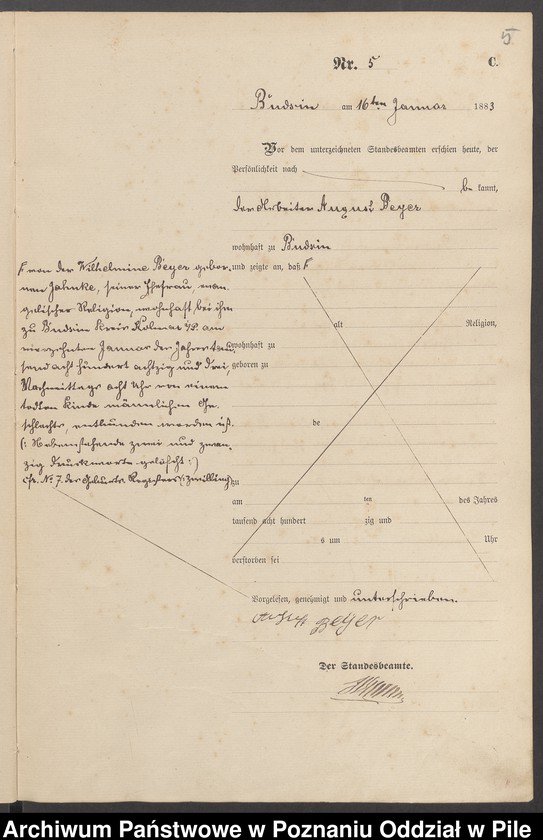 5
Nr. 5 C.
Budsin am 16ten Januar 1883
Vor dem unterzeichneten Standesbeamten erschien heute, der
Persönlichkeit nach
be kannt,
der Arbeiter August Beyer
wohnhaft zu Budsin
und zeigte an, daß F
F von der Wilhelmine Beyer gebor-
nen Jahnke, seiner Ehefrau, evan-
gelischer Religion, wohnhaft bei ihm
zu Budsin Kreis Kolmar i/P. am
vierzehnten Januar des Jahres tau-
send acht hundert achtzig und drei
Vormittags acht Uhr von einem
todten Kinde männlichen Ge-
schlechts, entbunden worden ist.
(: Nebenstehende zwei und zwan-
zig Druckworte gelöscht :)
cfr. No. 7. des Geburts-Registers (: Zwilling)
alt Religion,
wohnhaft zu
geboren zu
de
zu
am ten des Jahres
tausend acht hundert zig und
s um Uhr
verstorben sei
Vorgelesen, genehmigt und unterschrieben.
August Beyer
Der Standesbeamte.
Archiwum Państwowe w Poznaniu Oddział w Pile